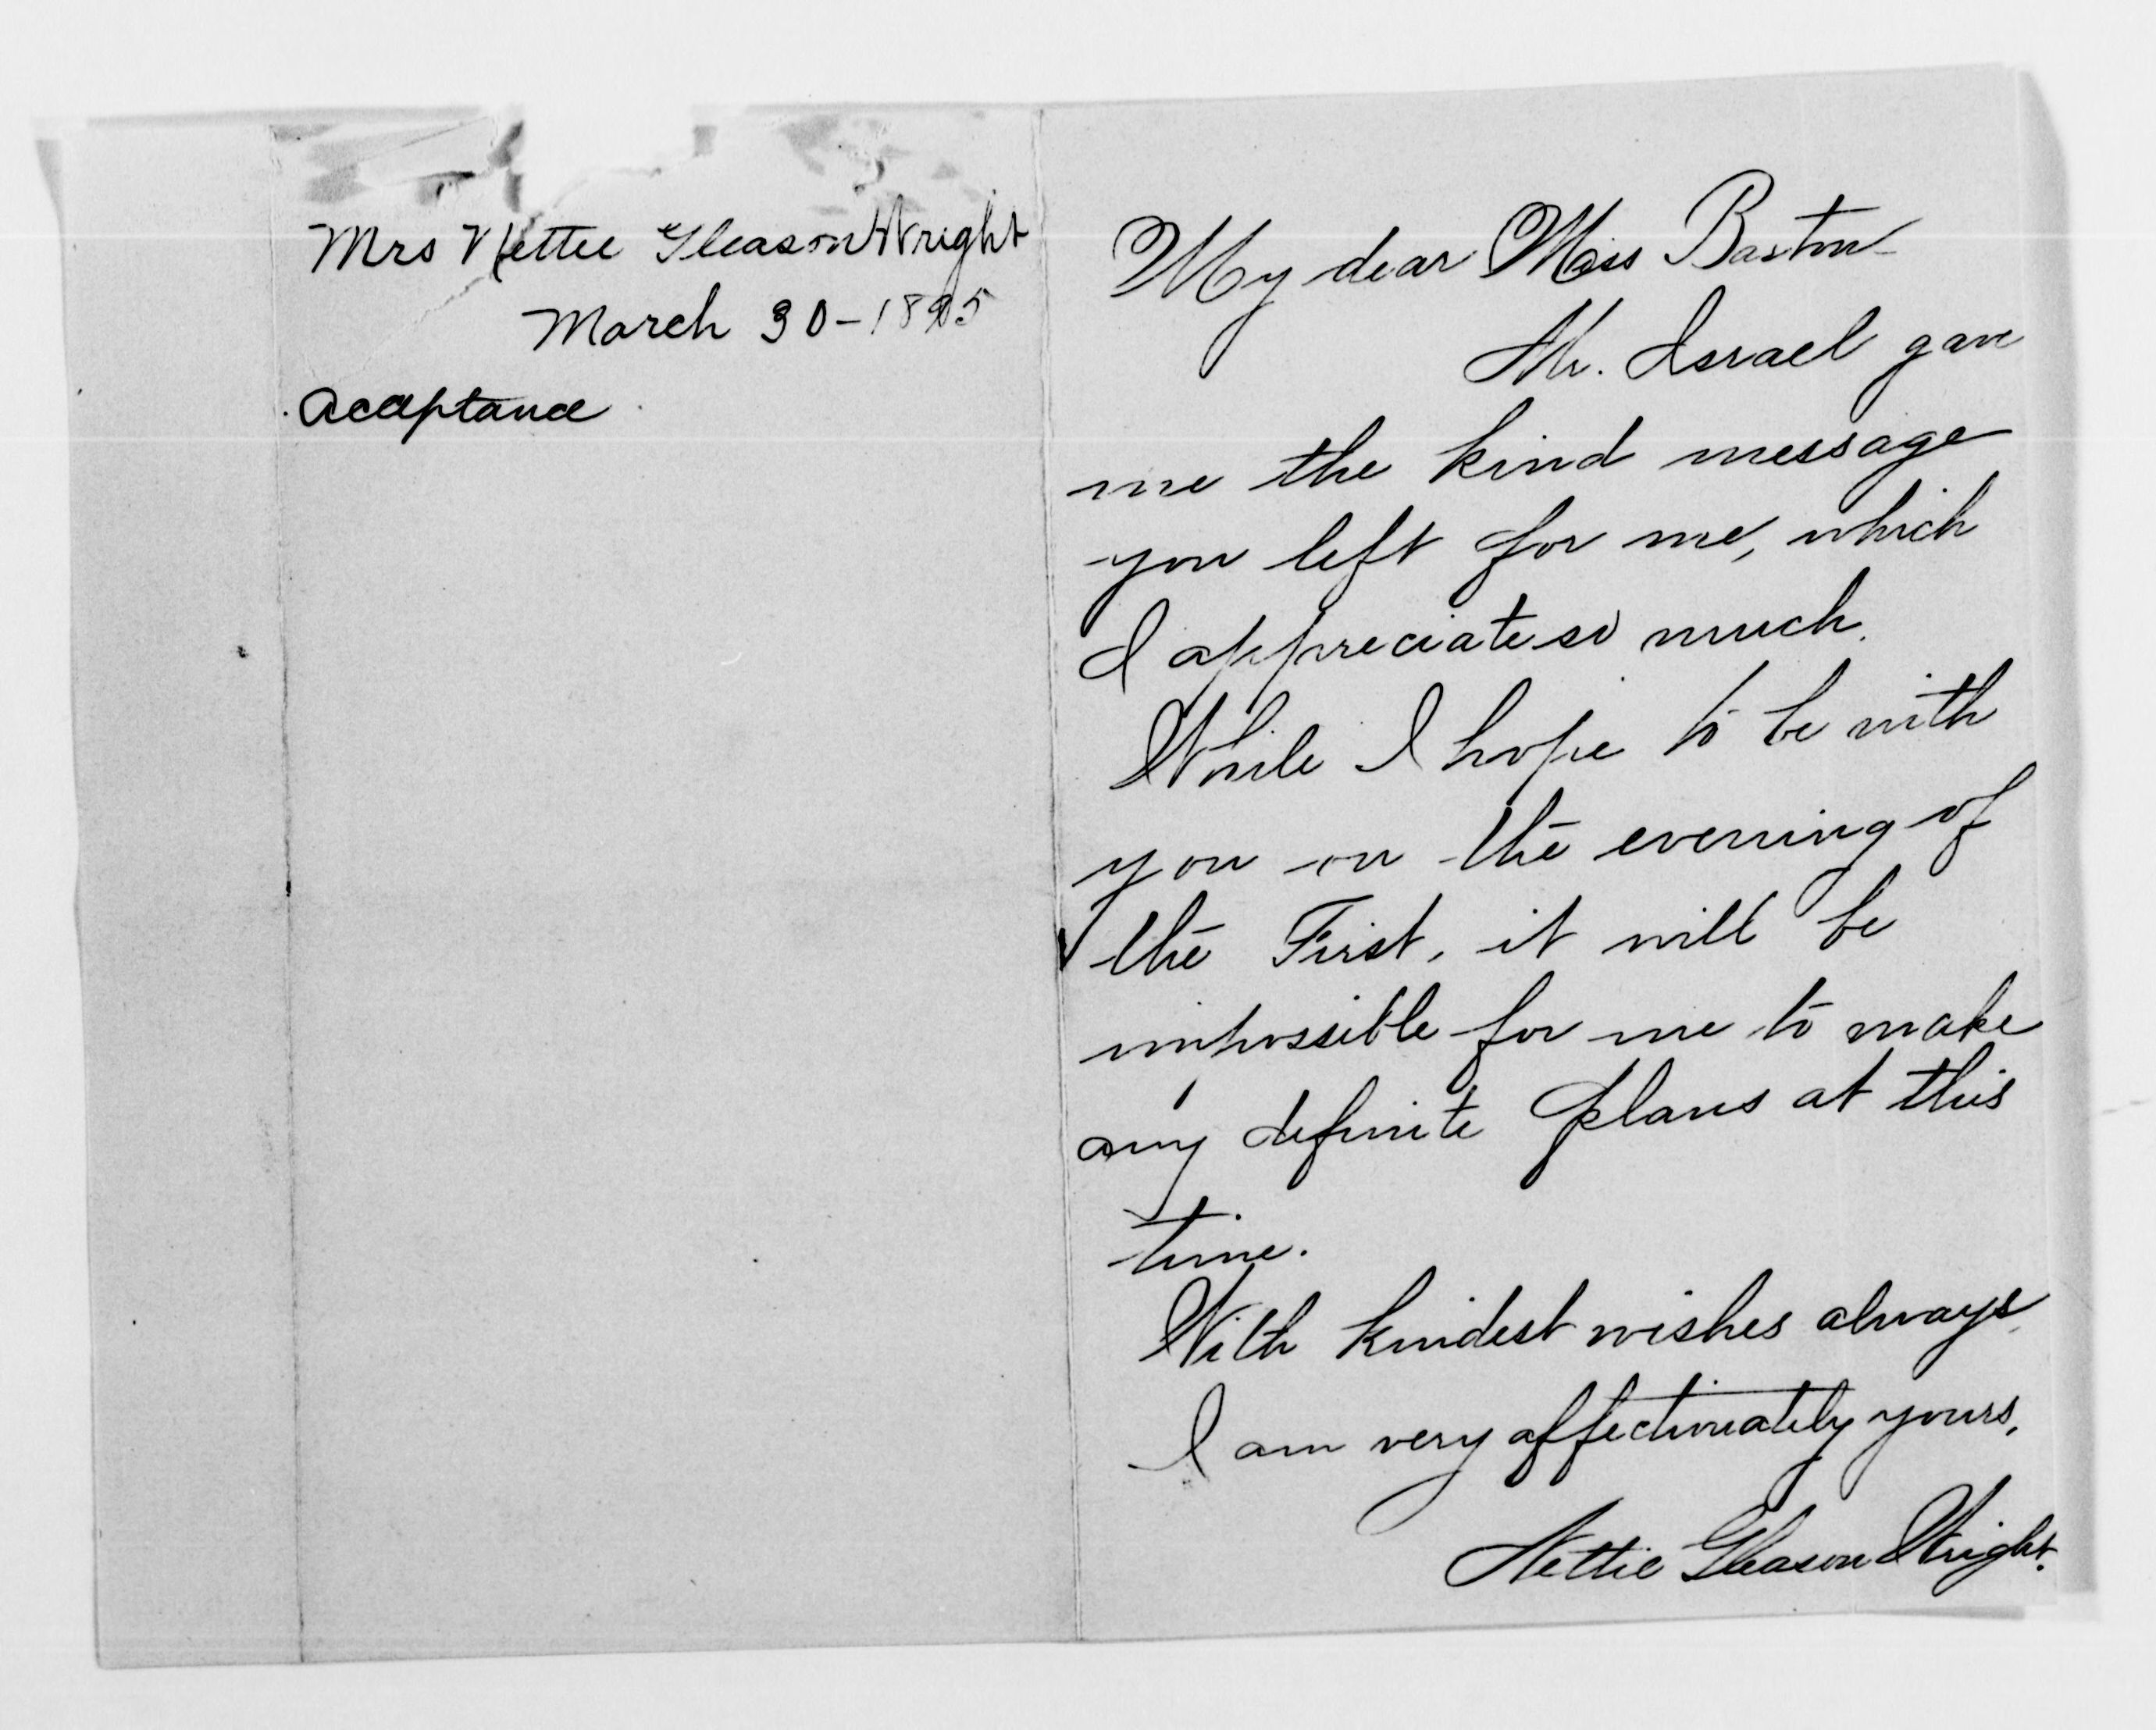 Mrs Nettie Gleason Wright
March 30-1895
Acceptance
My dear Miss Barton
Mr. Israel gave
me the kind message
you left for me, which
I appreciate so much.
While I hope to be with
you on the evening of
the First, it will be
impossible for me to make
any definite plans at this
time.
With kindest wishes always
I am very affectionately yours,
Nettie Gleason Wright.